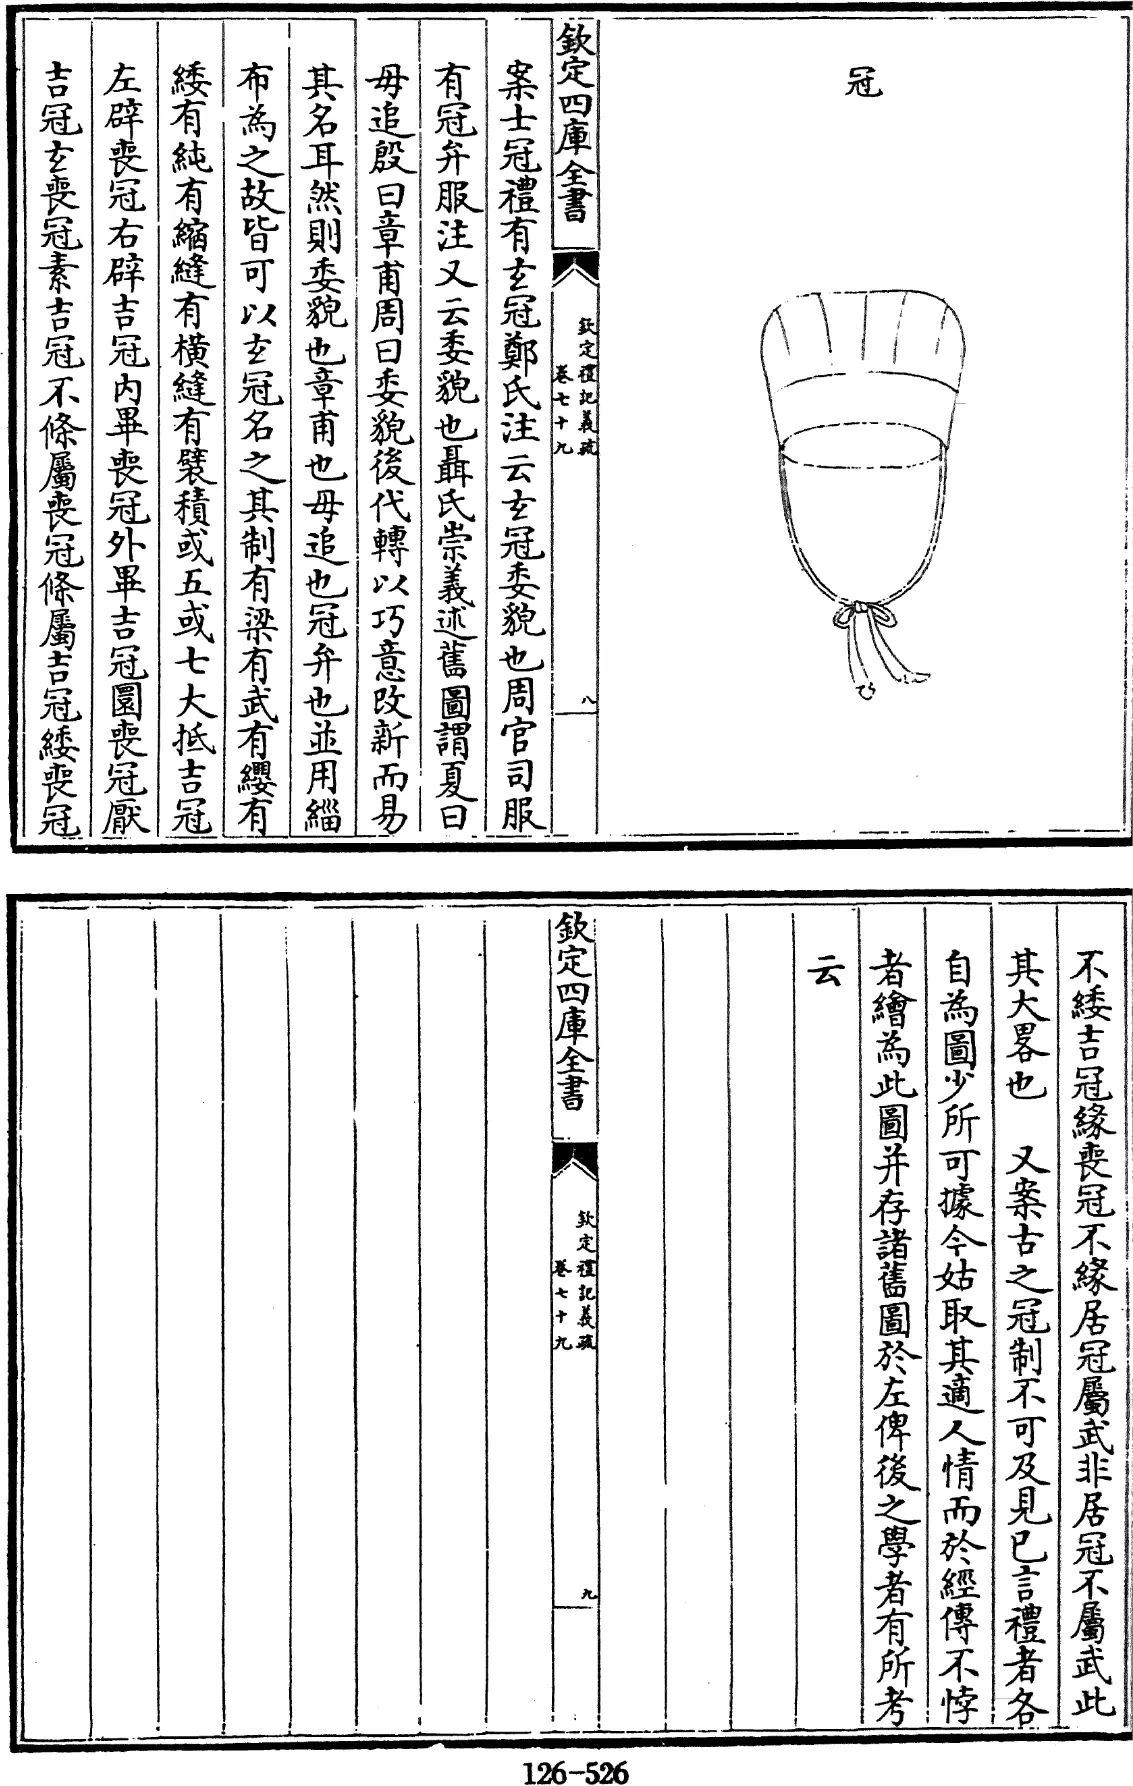 冠
欽定四庫全書
欽定禮記義疏
卷七十九
八
案士冠禮有玄冠鄭氏注云玄冠委貌也周官司服
有冠弁服注又云委貌也聶氏崇義述舊圖謂夏曰
毋追殷曰章甫周曰委貌後代轉以巧意改新而易
其名耳然則委貌也章甫也毋追也冠弁也並用緇
布為之故皆可以玄冠名之其制有梁有武有纓有
緌有純有縮縫有橫縫有襞積或五或七大抵吉冠
左辟喪冠右辟吉冠内畢喪冠外畢吉冠圜喪冠厭
吉冠玄喪冠素吉冠不條屬喪冠條屬吉冠緌喪冠
不緌吉冠緣喪冠不緣居冠屬武非居冠不屬武此
其大畧也　又案古之冠制不可及見已言禮者各
自為圖少所可據今姑取其適人情而於經傳不悖
者繪為此圖并存諸舊圖於左俾後之學者有所考
云
欽定四庫全書
欽定禮記義疏
卷七十九
九
126-526